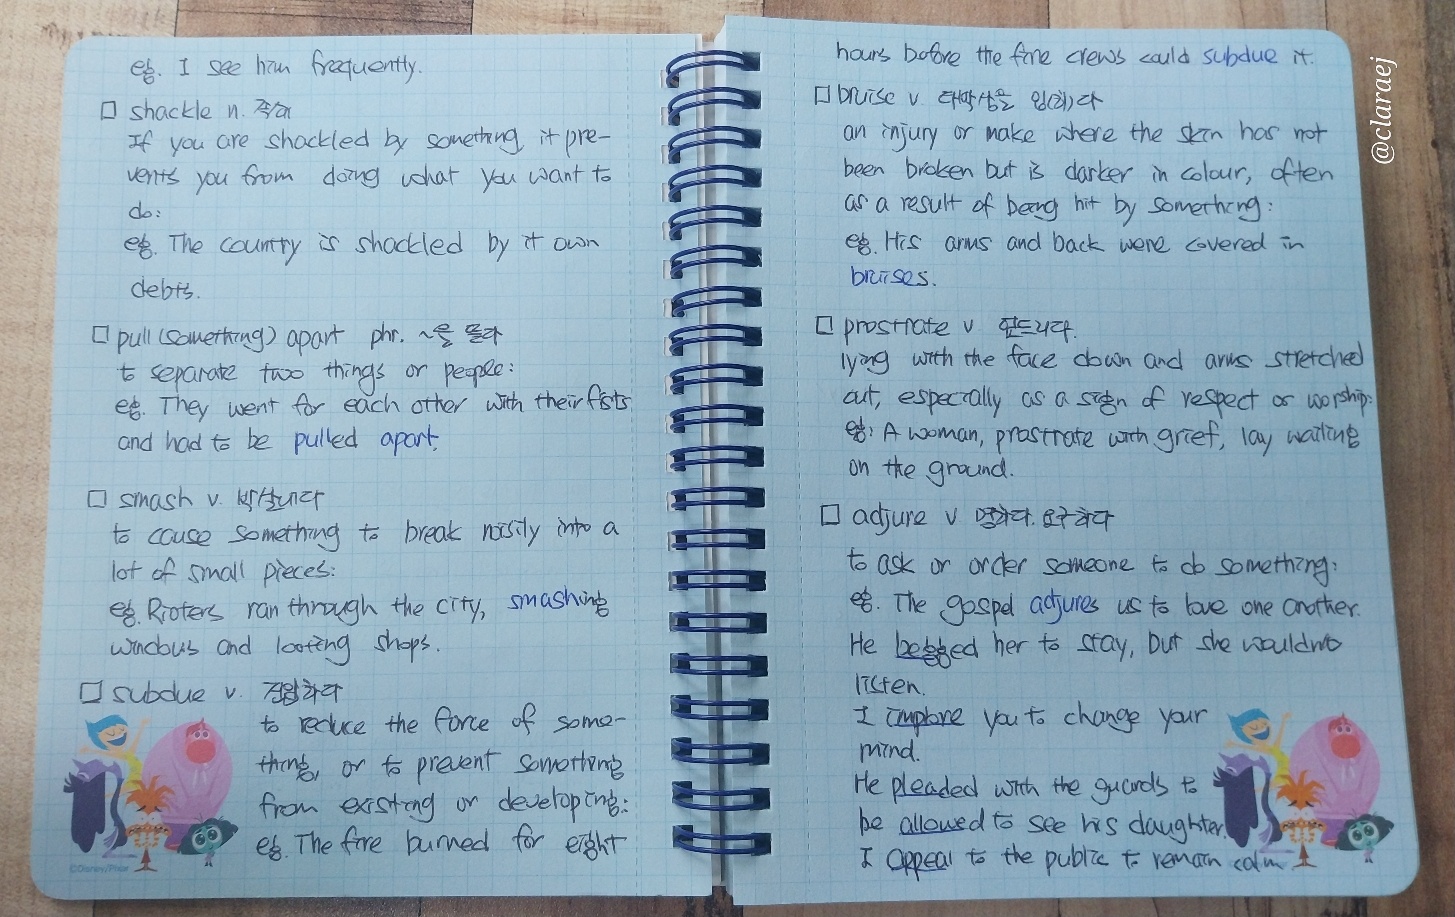 eg. I see him frequently.
□ shackle n. 족쇄
If you are shackled by something, it pre-
vents you from doing what you want to
do:
eg. The country is shackled by it own
debts.
□ pull (something) apart phr. ~을
to separate two things or people:
eg. They went for each other with their fists
and had to be pulled apart.
□ smash v. 박살내다
to cause something to break noisily into a
lot of small pieces:
eg. Rioters ran through the city, smashing
windows and looting shops.
□ subdue v. 진압하다
to reduce the force of some-
thing, or to prevent something
from existing or developing:
eg. The fire burned for eight
©Disney/Pixar
hours before the fire crews could subdue it.
□ bruise v. 타박상을 입(히)다
an injury or make where the skin has not
been broken but is darker in colour, often
as a result of being hit by something:
eg. His arms and back were covered in
bruises.
□ prostrate v 엎드리다.
lying with the face down and arms stretched
out, especially as a sign of respect or worship:
eg: A woman, prostrate with grief, lay wailing
on the ground.
□ adjure v 명하다. 요구하다
to ask or order someone to do something:
eg. The gospel adjures us to love one another.
He begged her to stay, but she wouldn't
listen.
I implore you to change your
mind.
He pleaded with the guards to
be allowed to see his daughter.
I appeal to the public to remain calm.
@claraej